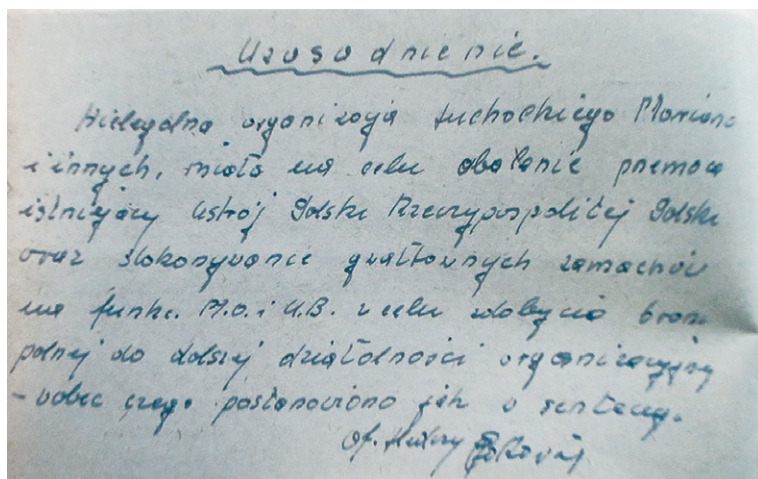 Uzasadnienie.
Nielegalna organizacja Suchockiego Mariana
i innych, miała na celu obalenie przemocą
istniejący ustrój Polski Rzeczypospolitej Polski
oraz dokonywanie gwałtownych zamachów
na funkc. M.O. i U.B. w celu zdobycia broni
palnej do dalszej działalności organizacyjnej
- wobec czego postanowiono jak w sentencji.
Of. śledczy